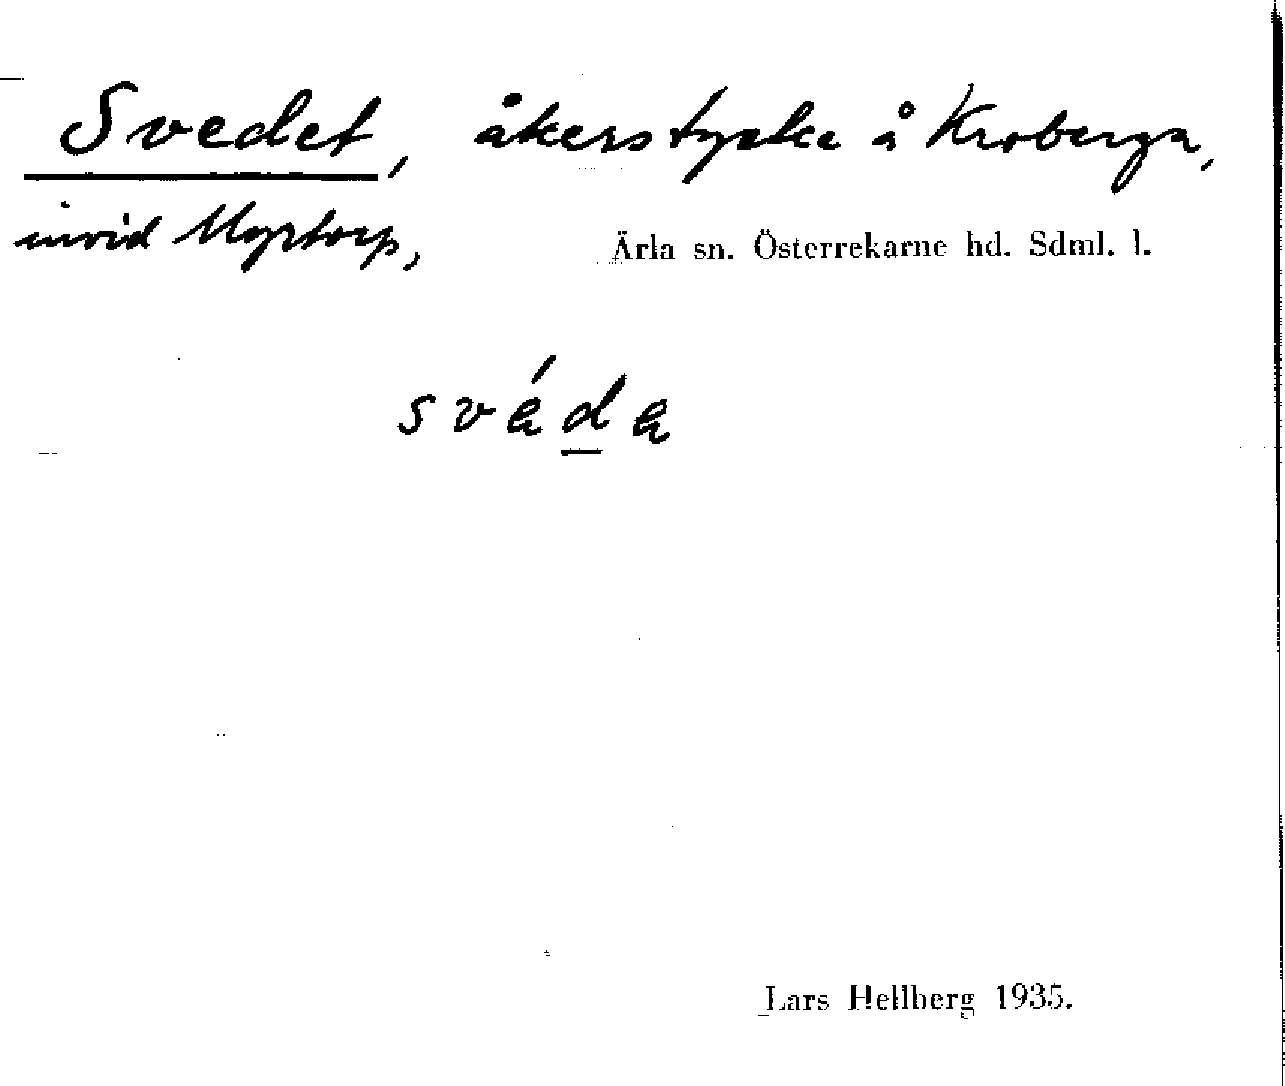 Svedet, åkerstycke å Kroberga,
invid Myrtorp,
Ärla sn. Österrekarne hd. Sdml. l.
svá̈da
Lars Hellberg 1935.